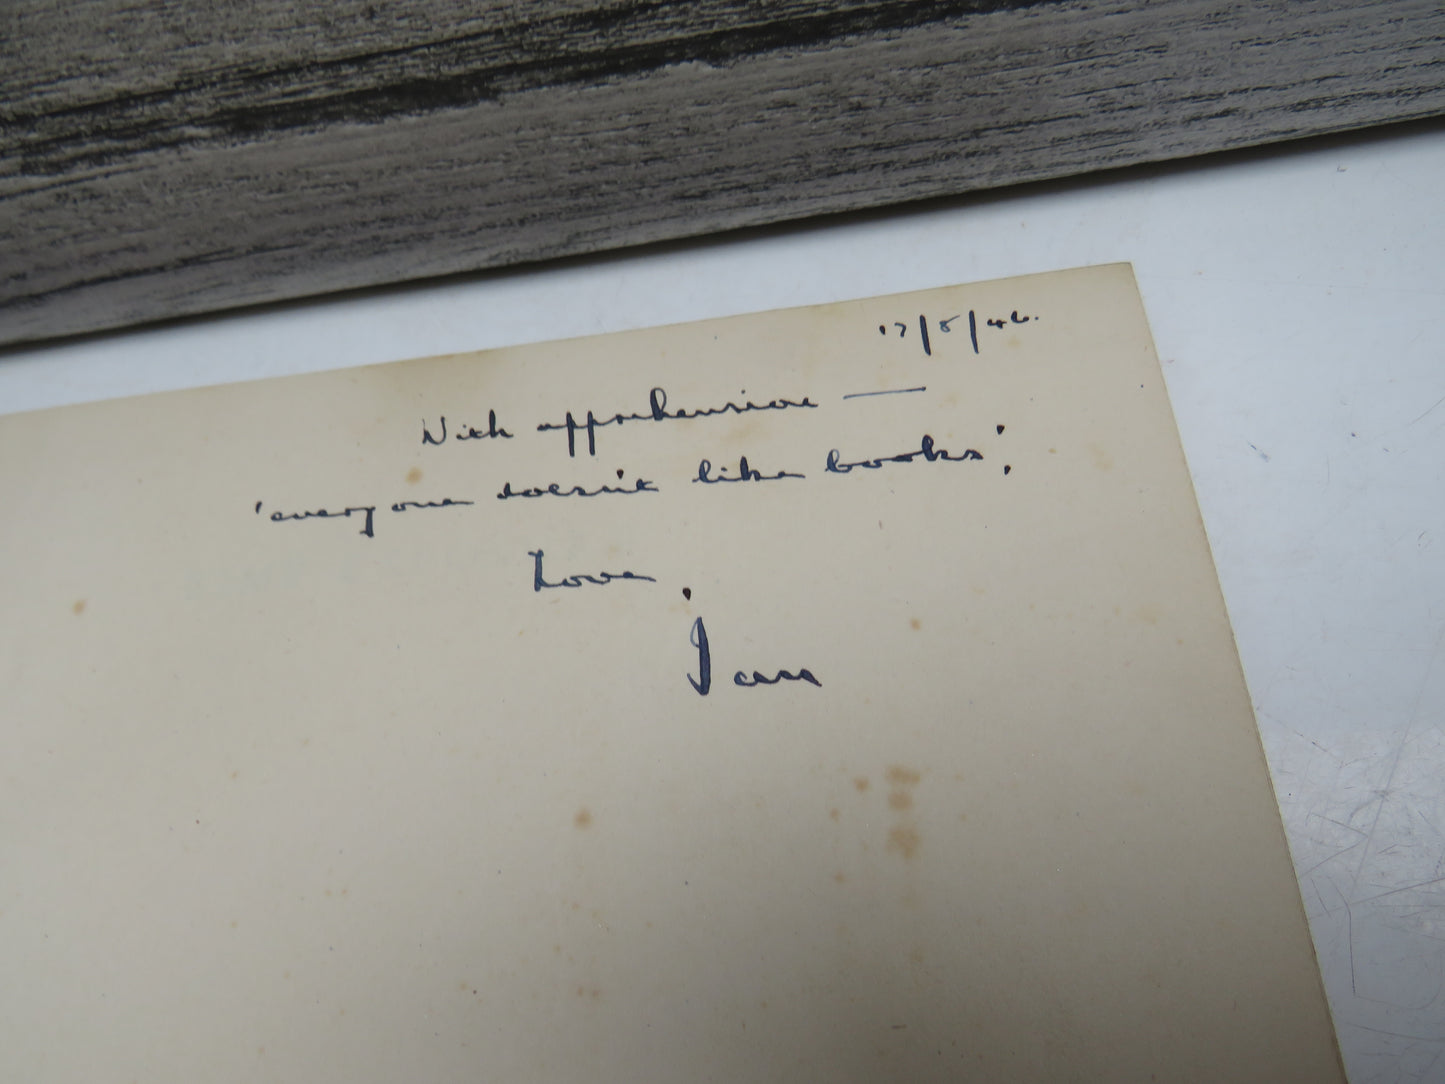 17/8/46.
With apprehension —
'everyone doesn't like books'.
Love,
Ian